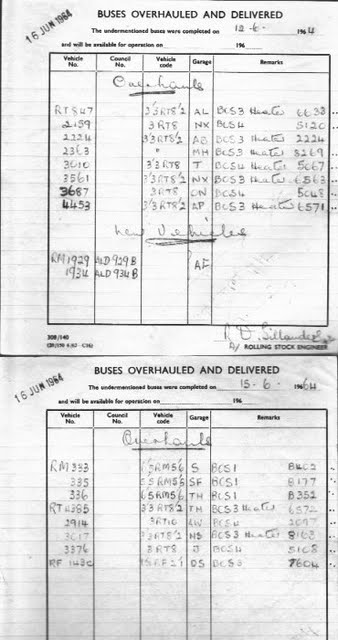 16 JUN 1964
BUSES OVERHAULED AND DELIVERED
The undermentioned buses were completed on 12-6- 1964
and will be available for operation on 196
Vehicle No. Council No. Vehicle code Garage Remarks
Overhauls
RT847 3'3RT8'2 AL BCS3 Heater 6633
2159 3RT8 NX BCS4 5120
2224 3'3RT8'2 AB BCS3 Heater 2224
2363 " MH BCS3 Heater 8269
3610 3'3RT8 T BCS4 Heater 5067
3561 3'3RT8'2 NX BCS3 Heater 6563
3687 3RT8 ON BCS4 5048
4453 3'3RT8'2 AP BCS3 Heater 6571
New Vehicles
RM1929 ALD929B AE
1934 ALD934B
308/140
A/ ROLLING STOCK ENGINEER
16 JUN 1964
BUSES OVERHAULED AND DELIVERED
The undermentioned buses were completed on 15-6- 1964
and will be available for operation on 196
Vehicle No. Council No. Vehicle code Garage Remarks
Overhauls
RM333 5RM5/6 S BCS1
335 SF BCS1 8177
336 6/5RM5/6 TH BCS1 8352
385 3'3RT8'2 TH BCS3 Heater 6572
2914 3RT10 BCS4 2097
3017 3'3RT8'2 NS BCS3 Heater 8163
3376 3RT8 J BCS4 5108
RF DS BCS3 7604